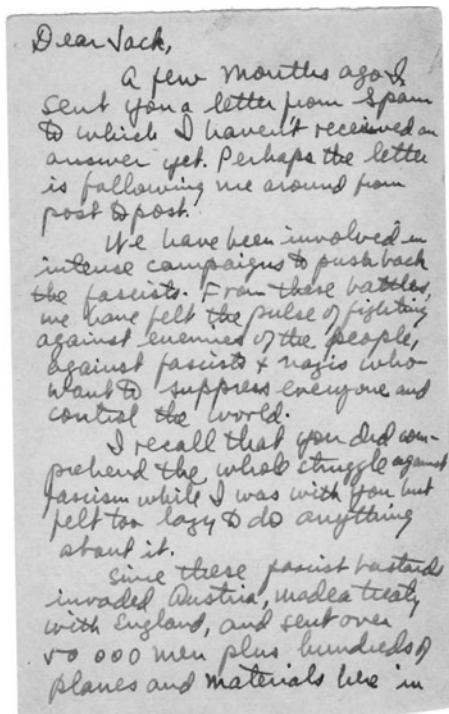 Dear Jack,
A few months ago I
sent you a letter from Spain
to which I haven't received an
answer yet. Perhaps the letter
is following me around from
post to post.
We have been involved in
intense campaigns to push back
the fascists. From these battles,
we have felt the pulse of fighting
against enemies of the people,
against fascists & nazis who
want to suppress everyone and
control the world.
I recall that you did com-
prehend the whole struggle against
fascism while I was with you but
felt too lazy to do anything
about it.
Since these fascist bastards
invaded Austria, made a treaty
with England, and sent over
50 000 men plus hundreds of
planes and materials here in